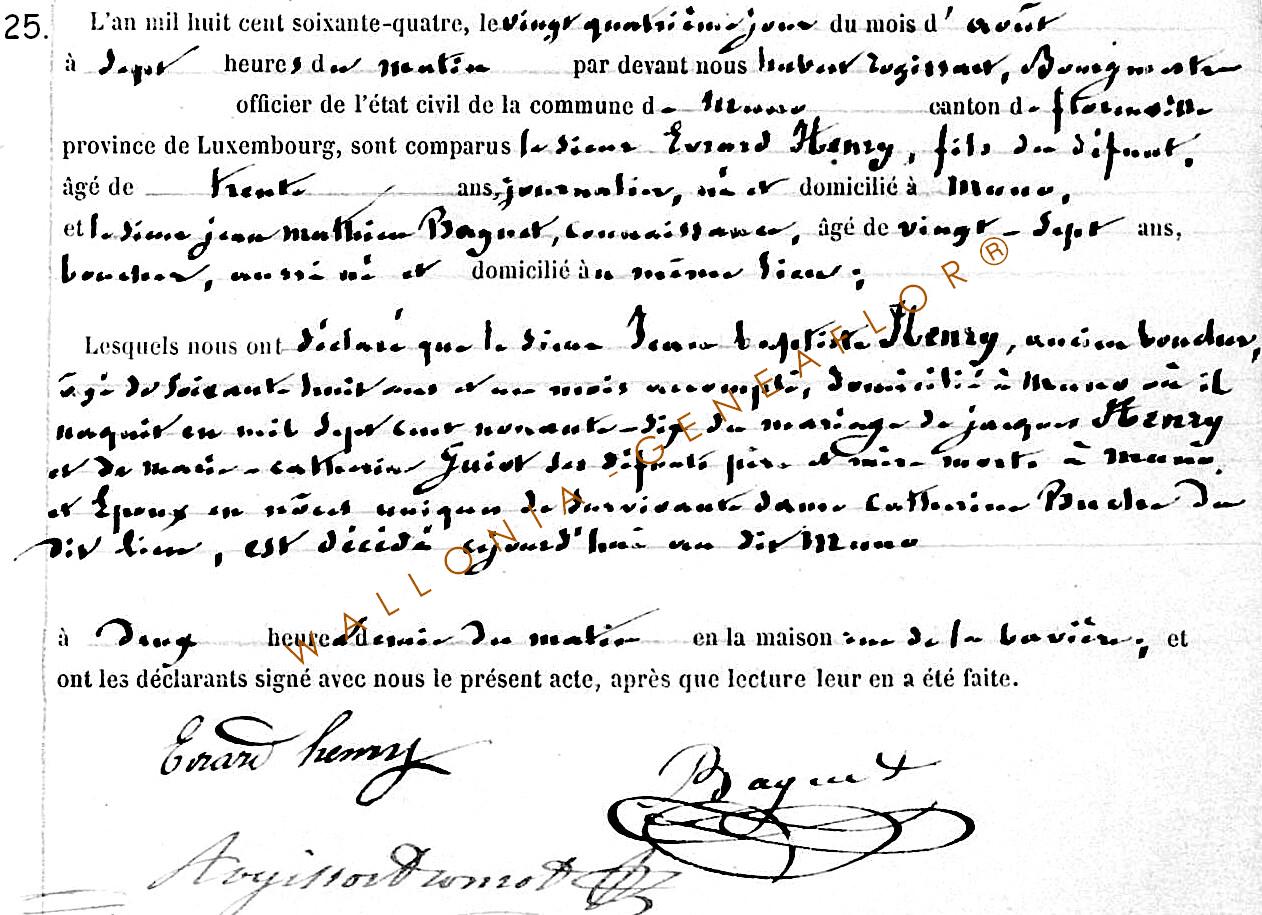 25. L'an mil huit cent soixante-quatre, le vingt quatrième jour du mois d'août
à Sept heures du matin par devant nous hubert Rogissart, Bourgmestre
officier de l'état civil de la commune de Muno canton de florenville
province de Luxembourg, sont comparus le Sieur Evrard Henry, fils du défunt,
âgé de trente ans, journalier, né et domicilié à Muno,
et le Sieur jean Mathieu Baguet, connaissance, âgé de vingt-Sept ans,
boucher, aussi né et domicilié au même lieu;
Lesquels nous ont déclaré que le Sieur Jean baptiste Henry, ancien boucher,
âgé de Soixante huit ans et un mois accomplis, domicilié à Muno où il
naquit en mil Sept cent nonante-Six du mariage de jacques Henry
et de marie-catherine Guiot des défunts père et mère morts à Muno,
et Epoux en nôces uniques de Survivante dame Catherine Buche du
dit lieu, est décédé aujourd'hui au dit Muno
à Deux heures & demie du matin en la maison rue de la bavière; et
ont les déclarants signé avec nous le présent acte, après que lecture leur en a été faite.
Evrard henry
Baguet
WALLONIA-GENEAFLOR®